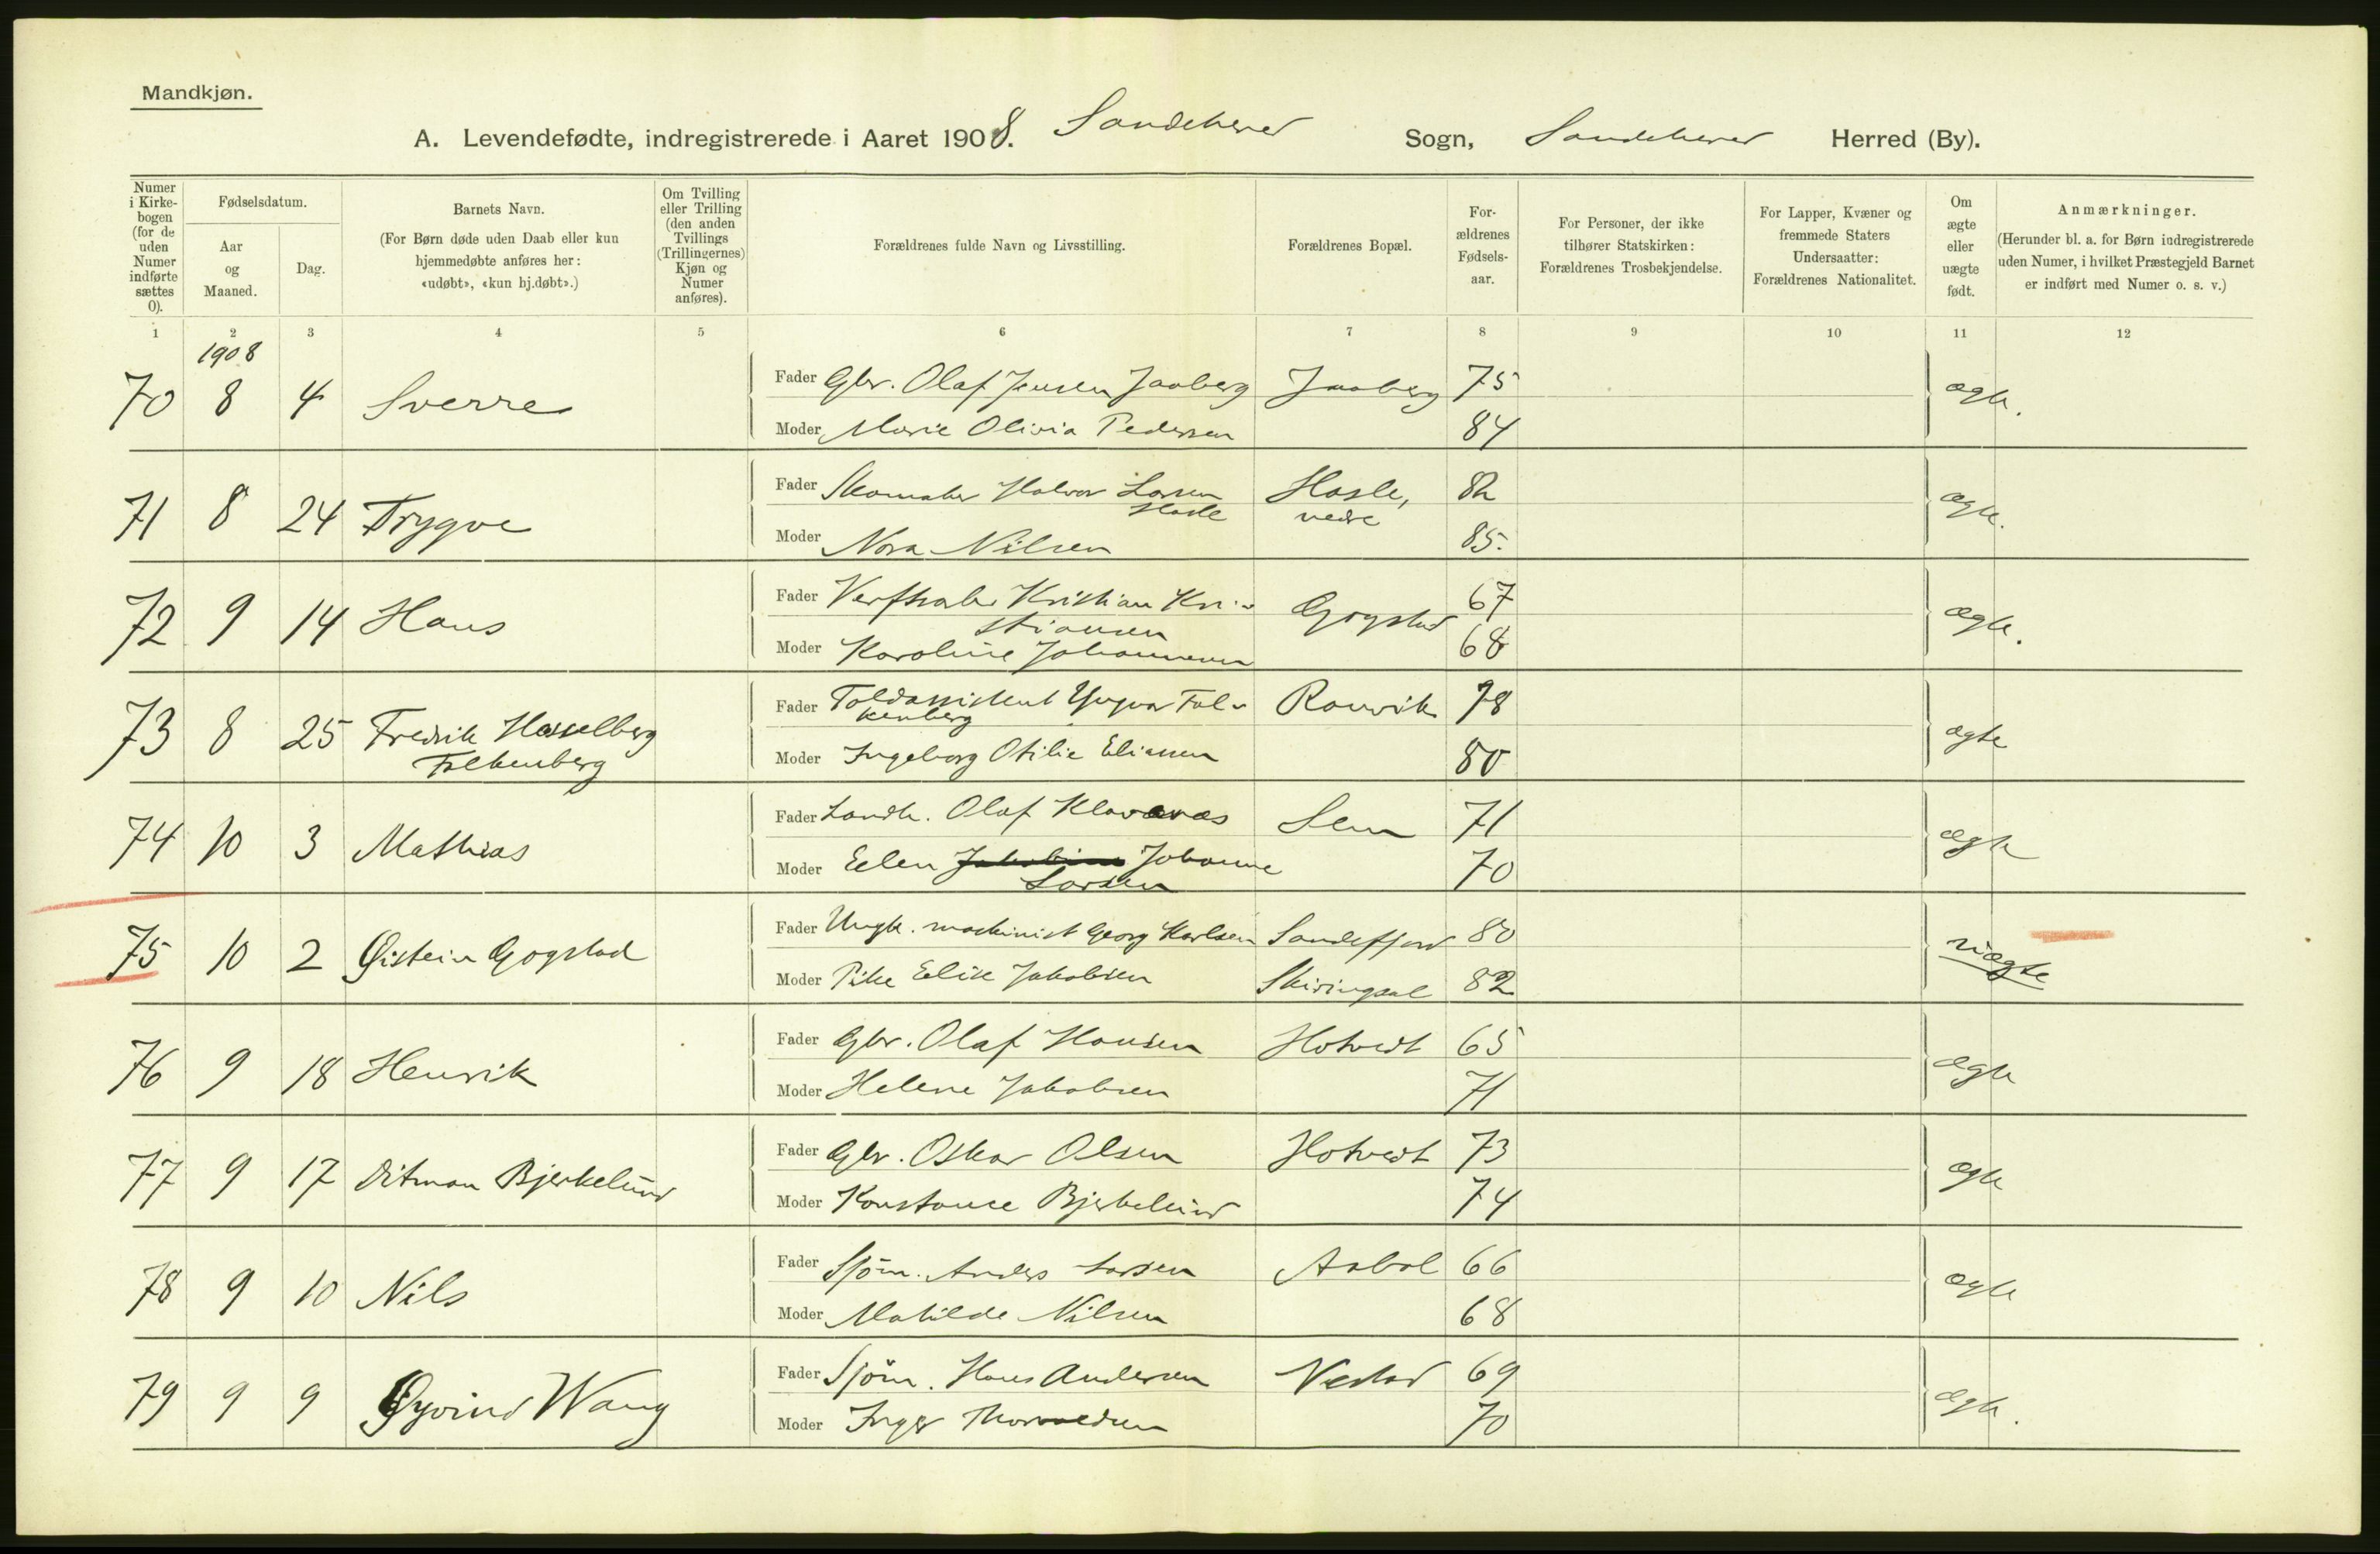 Mandkjøn.
A. Levendefødte, indregistrerede i Aaret 1908. Sandeherred Sogn, Sandeherred Herred (By).
Numer i Kirkebogen (for de uden Numer indførte sættes 0).
Fødselsdatum.
Aar og Maaned.
Dag.
Barnets Navn.
(For Børn døde uden Daab eller kun hjemmedøbte anføres her: «udøbt», «kun hj.døbt».)
Om Tvilling eller Trilling (den anden Tvillings (Trillingernes) Kjøn og Numer anføres).
Forældrenes fulde Navn og Livsstilling.
Forældrenes Bopæl.
Forældrenes Fødselsaar.
For Personer, der ikke tilhører Statskirken: Forældrenes Trosbekjendelse.
For Lapper, Kvæner og fremmede Staters Undersaatter: Forældrenes Nationalitet.
Om ægte eller uægte født.
Anmærkninger.
(Herunder bl. a. for Børn indregistrerede uden Numer, i hvilket Præstegjeld Barnet er indført med Numer o. s. v.)
1 2 3 4 5 6 7 8 9 10 11 12
1908
70 8 4 Sverre Fader Gbr. Olaf Jensen Jaaberg Jaaberg 75 ægte.
Moder Marie Olivia Pedersen 84
71 8 24 Trygve Fader Skomaker Halvor Larsen Hasle Hasle, nedre 82 ægte.
Moder Nora Nilsen 85.
72 9 14 Hans Fader Verftsarb. Kristian Kristiansen Gogstad 67 ægte.
Moder Karoline Johannesen 68
73 8 25 Fredrik Hasselberg Falkenberg Fader Toldassistent Yngvar Falkenberg Ranvik 78 ægte
Moder Ingeborg Otilie Eliassen 80
74 10 3 Mathias Fader Landh. Olaf Klavenæs Sem 71 ægte
Moder Elen Jakobine Johanne Larsen 70
75 10 2 Øistein Gogstad Fader Ungk. maskinist Georg Karlsen Sandefjord 80 uægte
Moder Pike Elise Jakobsen Skiringsal 82
76 9 18 Henrik Fader Gbr. Olaf Hansen Hotvedt 65 ægte
Moder Helene Jakobsen 71
77 9 17 Ditman Bjerkelund Fader Gbr. Oskar Olsen Hotvedt 73 ægte
Moder Konstance Bjerkelund 74
78 9 10 Nils Fader Sjöm. Anders Larsen Aabol 66 ægte
Moder Mathilde Nilsen 68
79 9 9 Øyvind Wang Fader Sjöm. Hans Andersen 69 ægte.
Moder Inger Thorvaldsen 70